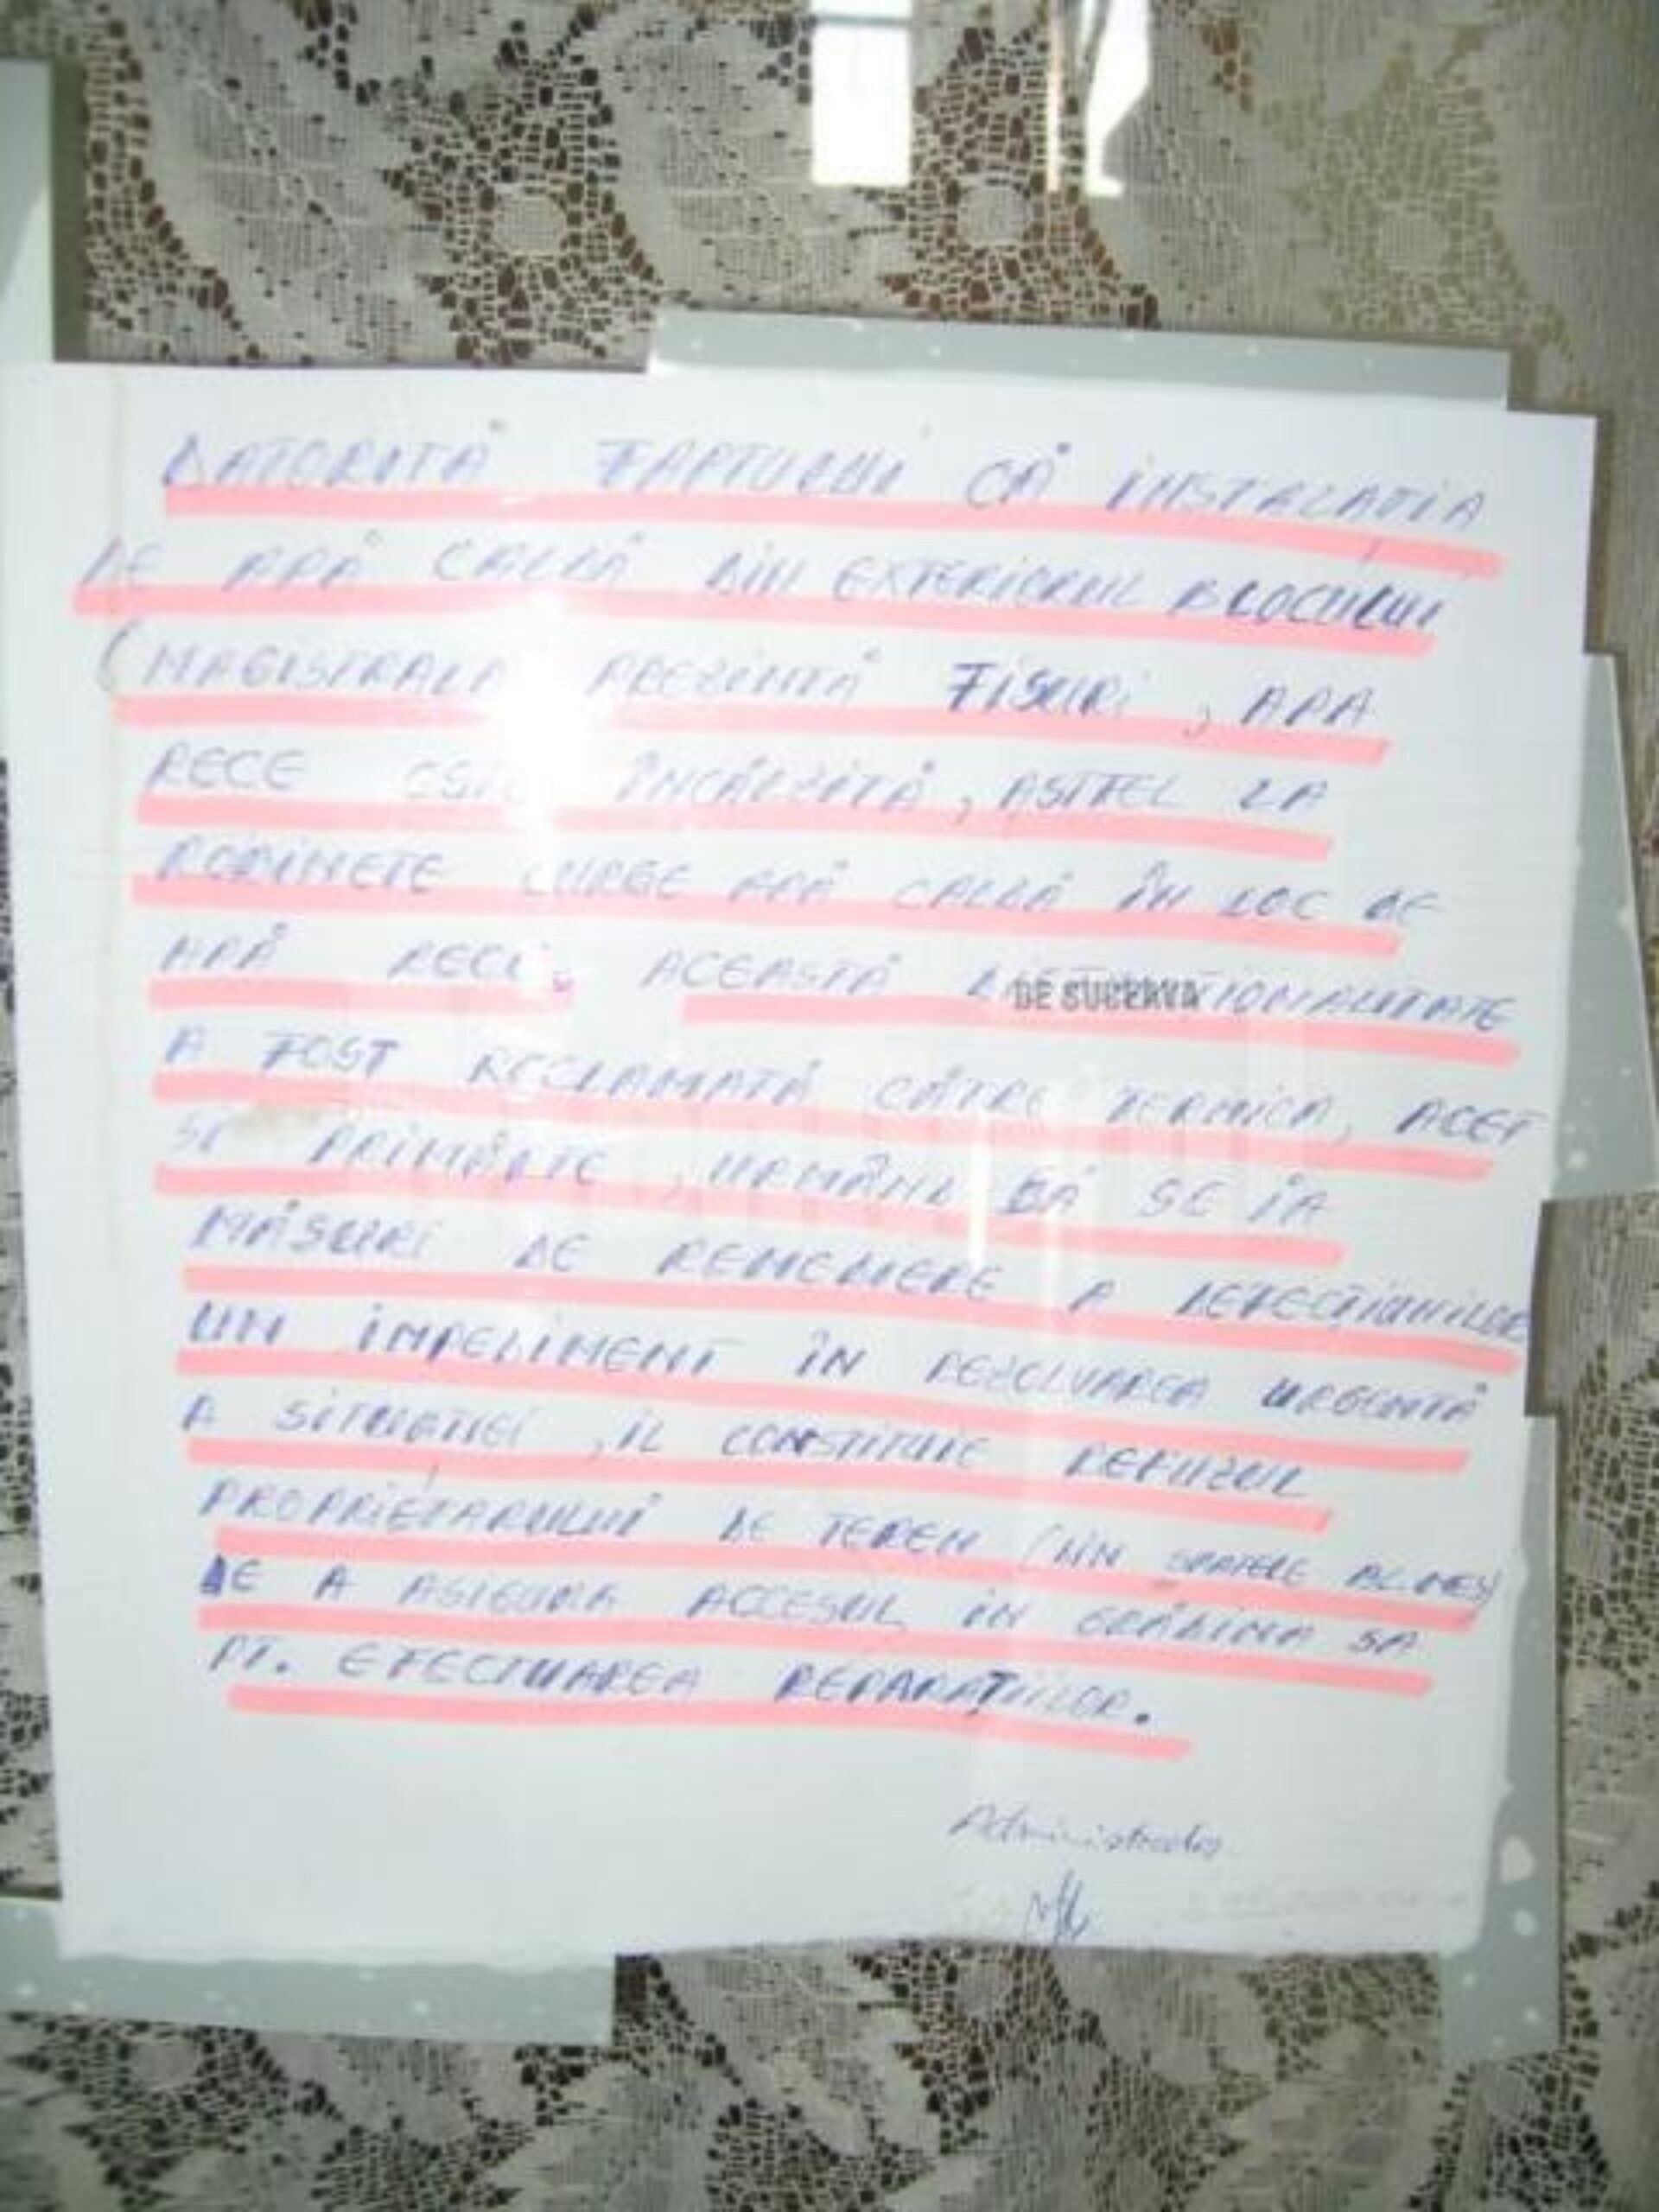 DATORITĂ FAPTULUI CĂ INSTALAȚIA
DE APĂ CALDĂ DIN EXTERIORUL BLOCULUI
(MAGISTRALA PREZINTĂ FISURI, APA
RECE ESTE ÎNCĂLZITĂ, ASTFEL LA
ROBINETE CURGE APĂ CALDĂ ÎN LOC DE
APĂ RECE. ACEASTĂ
DE SUCEAVA
A FOST RECLAMATĂ CĂTRE TERMICA, ACET
PRIMĂRIE, URMÂND SĂ SE IA
MĂSURI DE REMEDIERE A DEFECȚIUNILOR
UN IMPEDIMENT ÎN REZOLVAREA URGENTĂ
A SITUAȚIEI, ÎL CONSTITUIE REFUZUL
PROPRIETARULUI DE TEREN (DIN SPATELE
DE A ASIGURA ACCESUL ÎN GRĂDINA SA
PT. EFECTUAREA REPARAȚIILOR.
Administrator